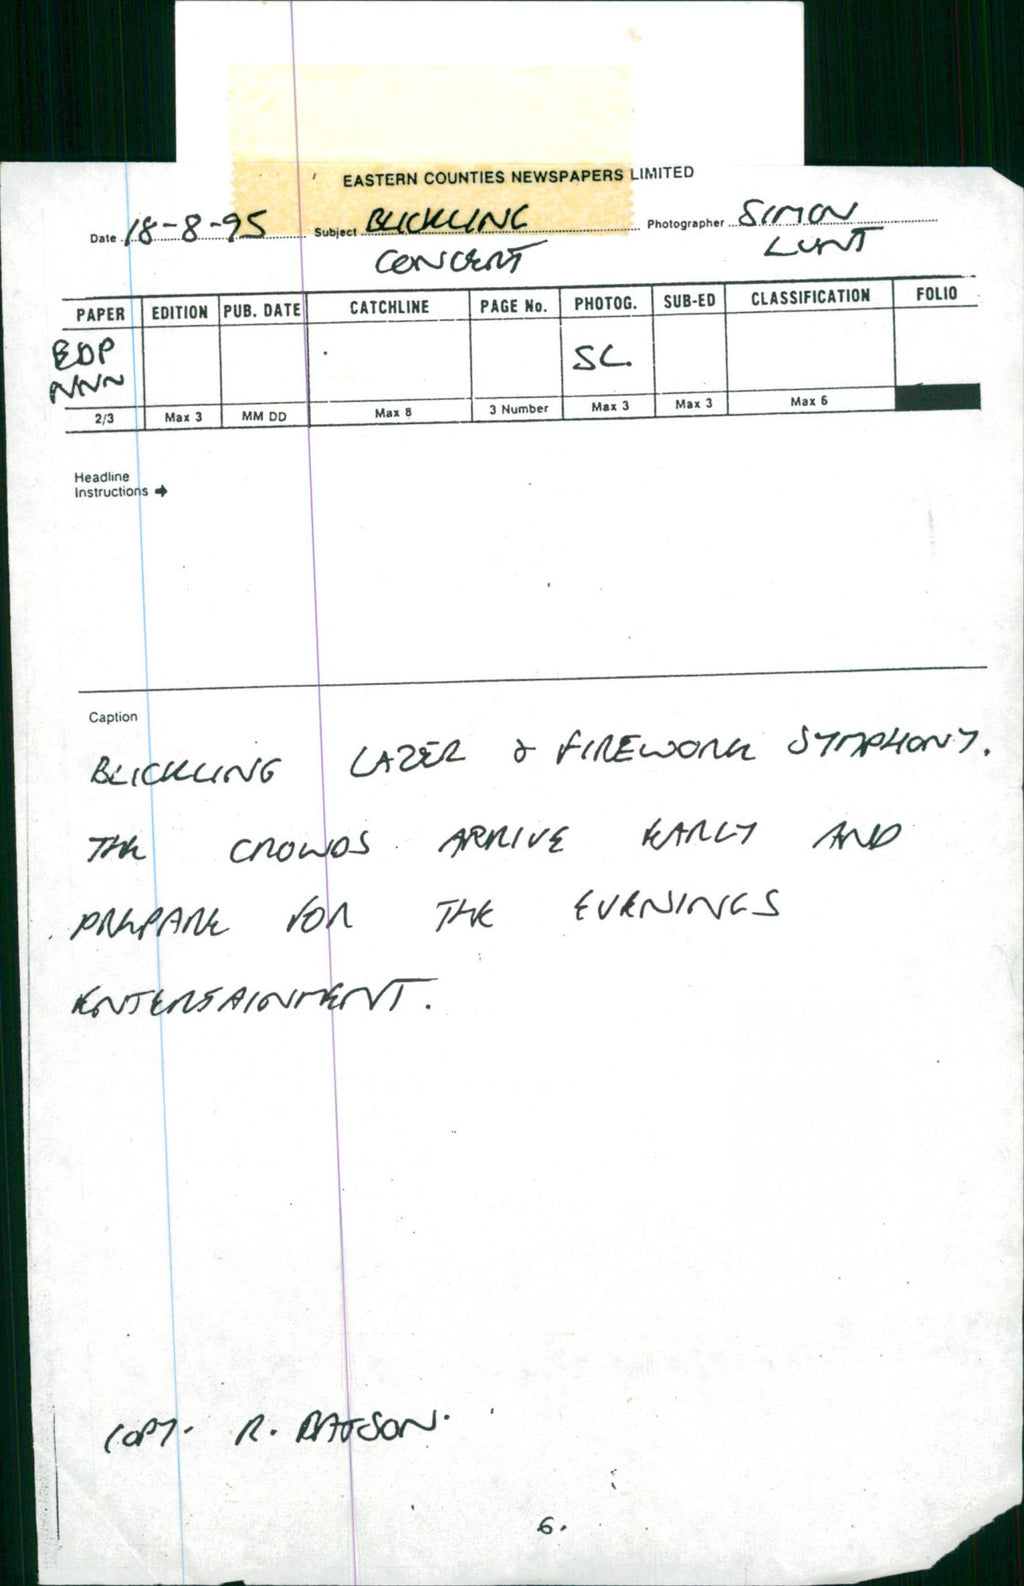 EASTERN COUNTIES NEWSPAPERS LIMITED
Date 18-8-95 Subject BLICKLING Photographer SIMON
CONCERT LUNT
PAPER EDITION PUB. DATE CATCHLINE PAGE No. PHOTOG. SUB-ED CLASSIFICATION FOLIO
EDP SL
NNN
2/3 Max 3 MM DD Max 8 3 Number Max 3 Max 3 Max 6
Headline
Instructions ➔
Caption
BLICKLING LAZER & FIREWORK SYMPHONY.
THE CROWDS ARRIVE EARLY AND
PREPARE FOR THE EVENINGS
ENTERTAINMENT.
COPY. R. BATSON.
6.